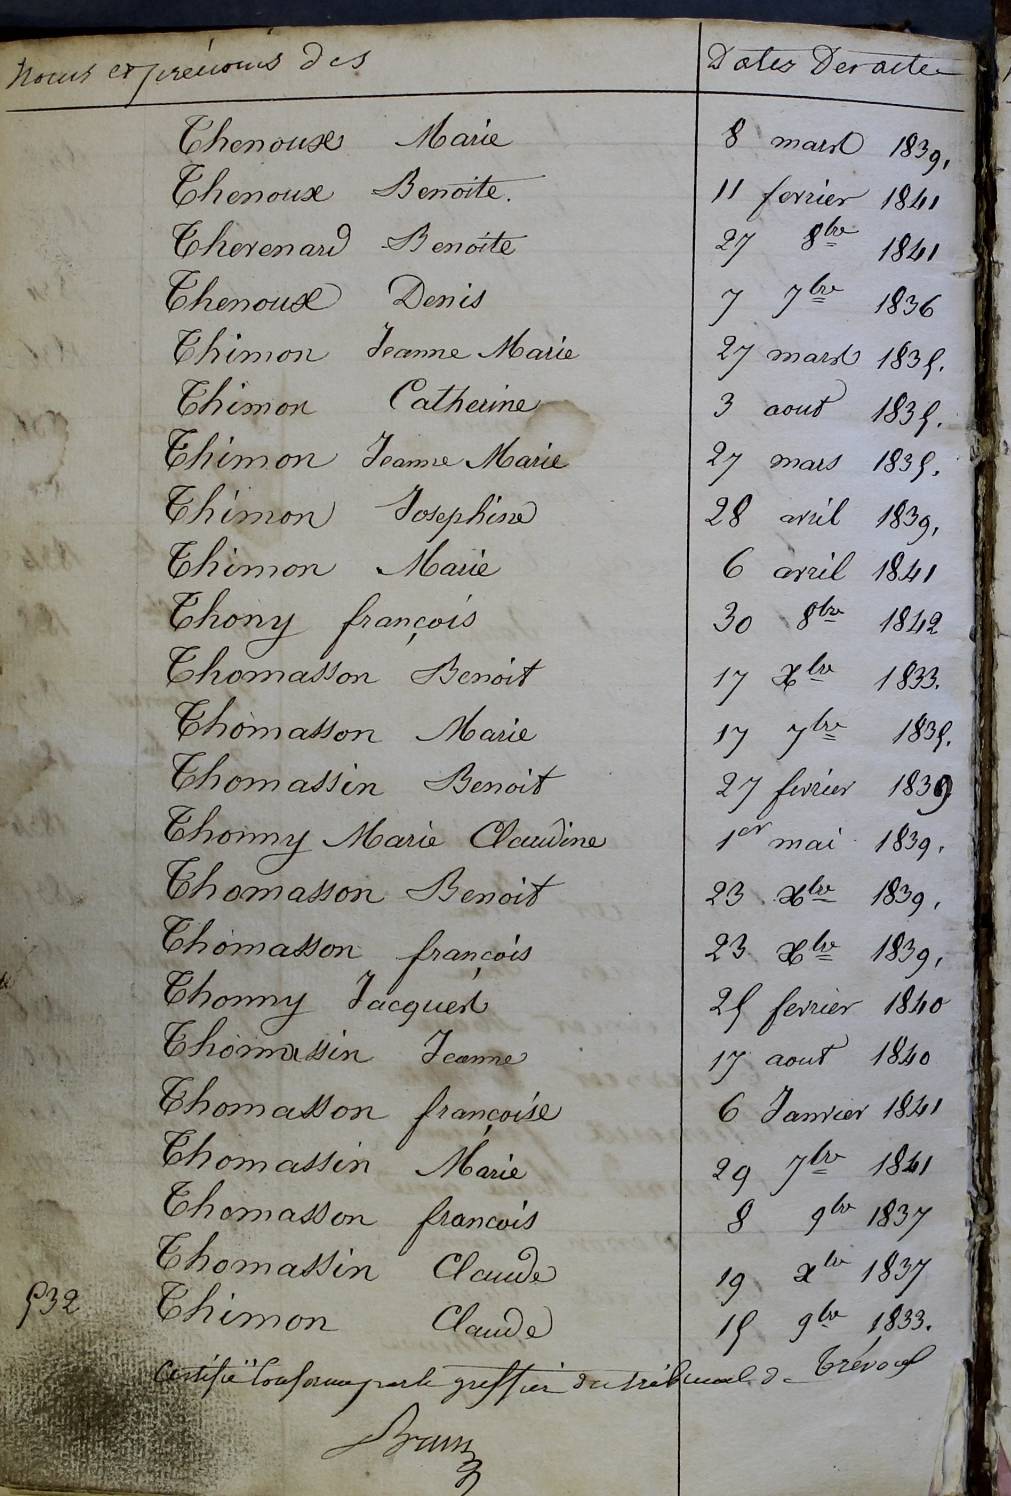 Noms et prénoms des Dates des actes
Thenoux Marie 8 mars 1839,
Thenoux Benoite. 11 fevrier 1841
Thevenard Benoite 27 8bre 1841
Thenoux Denis 7 7bre 1836
Thimon Jeanne Marie 27 mars 1835.
Thimon Catherine 3 aout 1835.
Thimon Jeanne Marie 27 mars 1835.
Thimon Josephine 28 avril 1839,
Thimon Marie 6 avril 1841
Thony françois 30 8bre 1842
Thomasson Benoit 17 Xbre 1833.
Thomasson Marie 17 7bre 1835.
Thomassin Benoit 27 fevrier 1839
Thonny Marie Claudine 1er mai 1839.
Thomasson Benoit 23 Xbre 1839,
Thomasson françois 23 Xbre 1839,
Thonny Jacques 25 fevrier 1840
Thomassin Jeanne 17 aout 1840
Thomasson françoise 6 Janvier 1841
Thomassin Marie 29 7bre 1841
Thomasson francois 8 9bre 1837
Thomassin Claude 19 Xbre 1837
532 Thimon Claude 15 9bre 1833.
Certifié Conforme par le greffier du tribunal de Trévoux
Brun